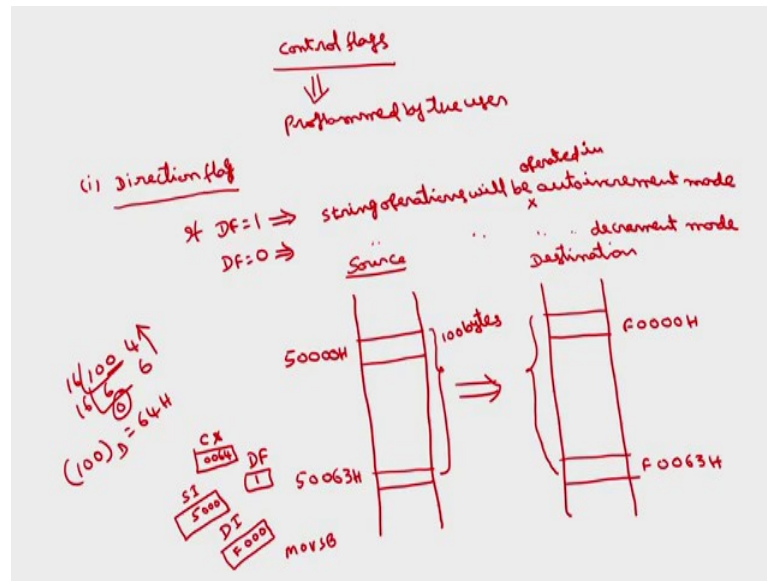 Control flags
⇓
Programmed by the user
(i) Direction flag
If DF=1 ⇒ string operations will be operated in autoincrement mode
x
DF=0 ⇒ ,, ,, ,, decrement mode
Source
Destination
50000H
100bytes
F0000H
⇒
50063H
F0063H
16 100 4
16 6 6
0
(100)D = 64H
CX
0064
DF
1
SI
5000
DI
F000
MOVSB